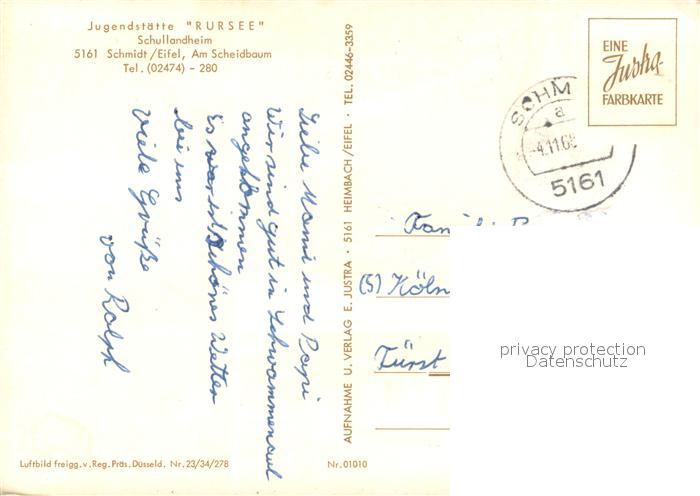 Jugendstätte "RURSEE"
Schullandheim
5161 Schmidt/Eifel, Am Scheidbaum
Tel. (02474) - 280
Liebe Mami und Papi
Wir sind gut in Schwammenauel
angekommen
Es war ist schönes Wetter
bei uns
Viele Grüße
von Ralph
Luftbild freigg. v. Reg. Präs. Düsseld. Nr. 23/34/278
Nr. 01010
AUFNAHME U. VERLAG E. JUSTRA · 5161 HEIMBACH/EIFEL · TEL. 02446-3359
EINE
Justra-
FARBKARTE
SCHM
a
-4.11.68
5161
(5) Köln
Fürst
privacy protection
Datenschutz